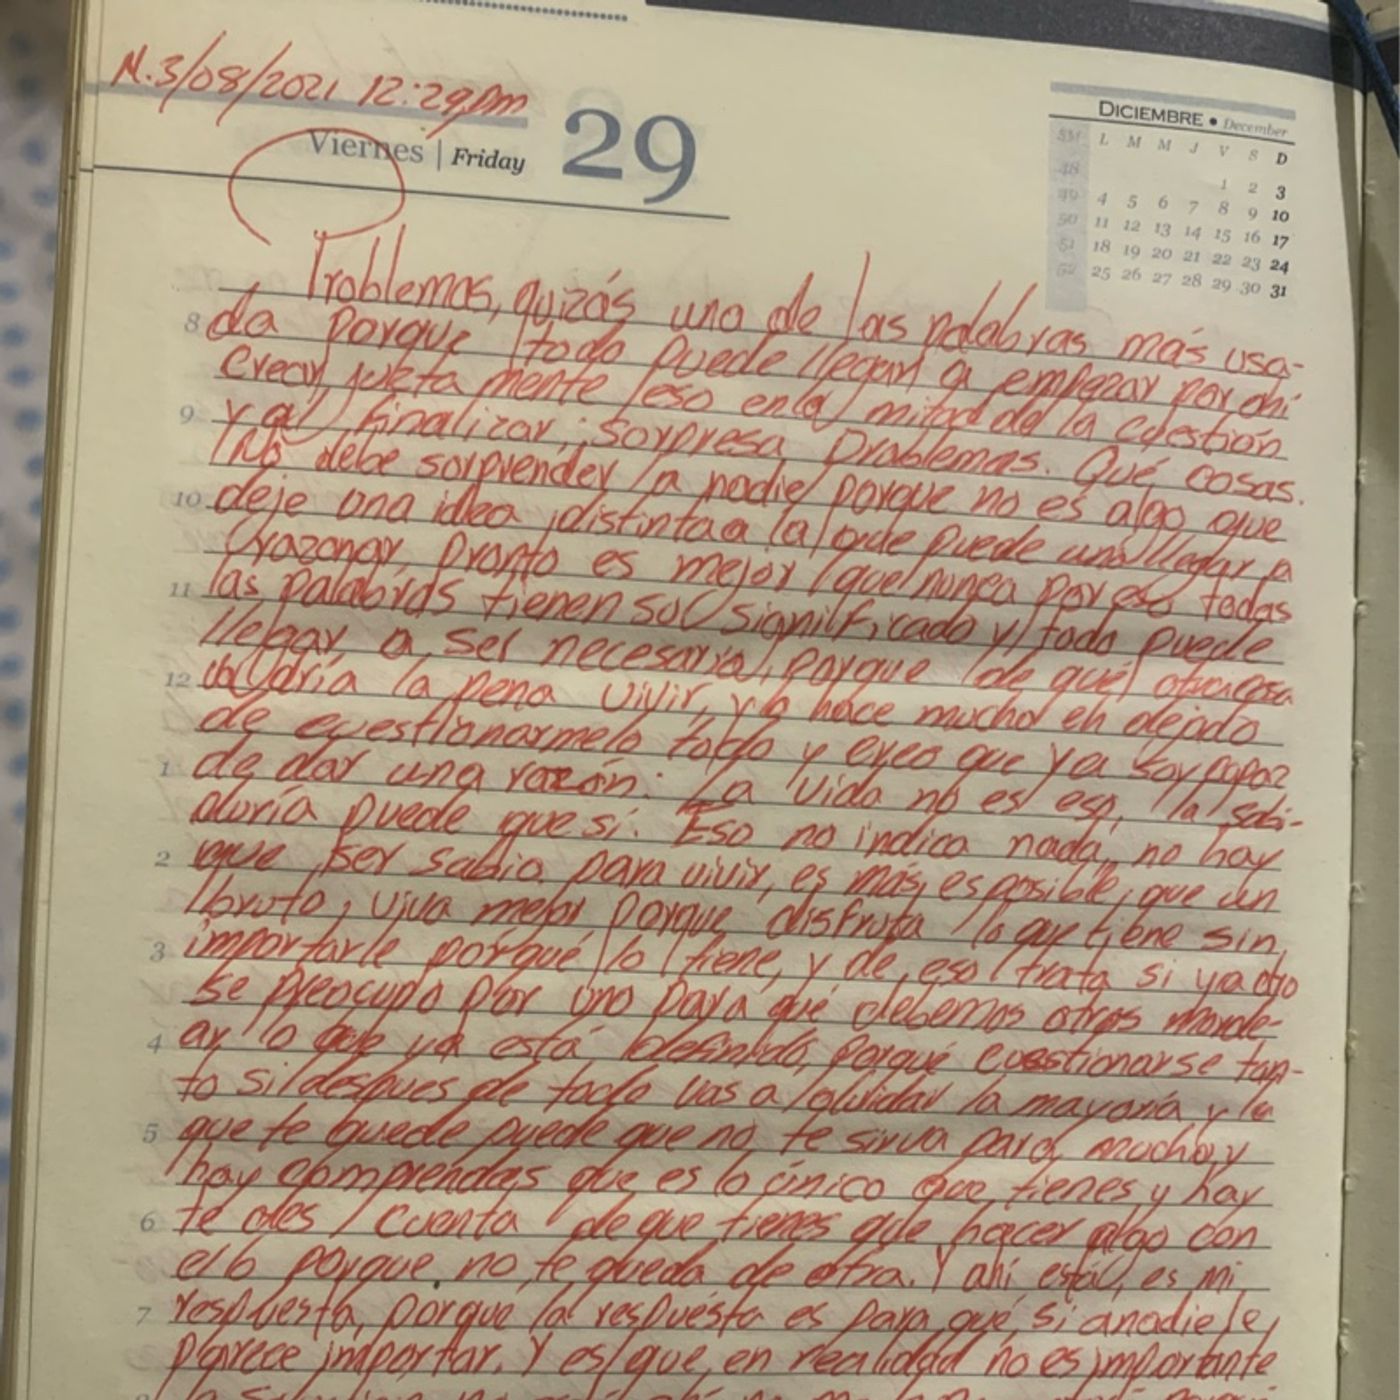 M. 3/08/2021 12:29pm
Viernes | Friday 29
DICIEMBRE • December
SM L M M J V S D
48 1 2 3
49 4 5 6 7 8 9 10
50 11 12 13 14 15 16 17
51 18 19 20 21 22 23 24
52 25 26 27 28 29 30 31
Problemas, quizás una de las palabras más usa-
8 da porque todo puede llegar a empezar por ahí
Crear, justa mente eso en la mitad de la cuestión
9 y al finalizar, ¡sorpresa problemas. Qué cosas.
No debe sorprender a nadie porque no es algo que
10 deje una idea distinta a la que puede uno llegar a
razonar, pronto es mejor que nunca por eso todas
11 las palabras tienen su significado y todo puede
llegar a ser necesario, porque de qué otra cosa
12 valdría la pena vivir, ya hace mucho eh dejado
de cuestionarmelo todo y creo que ya soy capaz
1 de dar una razón: La vida no es eso, la sabi-
duría puede que sí. Eso no indica nada, no hay
2 que ser sabio para vivir, es más, es posible, que un
bruto, viva mejor porque disfruta lo que tiene sin
3 importarle porqué lo tiene, y de eso trata si ya otro
se preocupo por uno para qué debemos otros
4 lo que ya está definido, porqué cuestionarse tan-
to si despues de todo vas a olvidar la mayoría y lo
5 que te quede puede que no te sirva para mucho, y
hay comprendas que es lo único que tienes y hay
6 te des cuenta de que tienes que hacer algo con
ello porque no te queda de otra. Y ahí está, es mi
7 respuesta, porque la respuesta es para qué, si a nadie le
parece importar. Y es que, en realidad no es importante
8